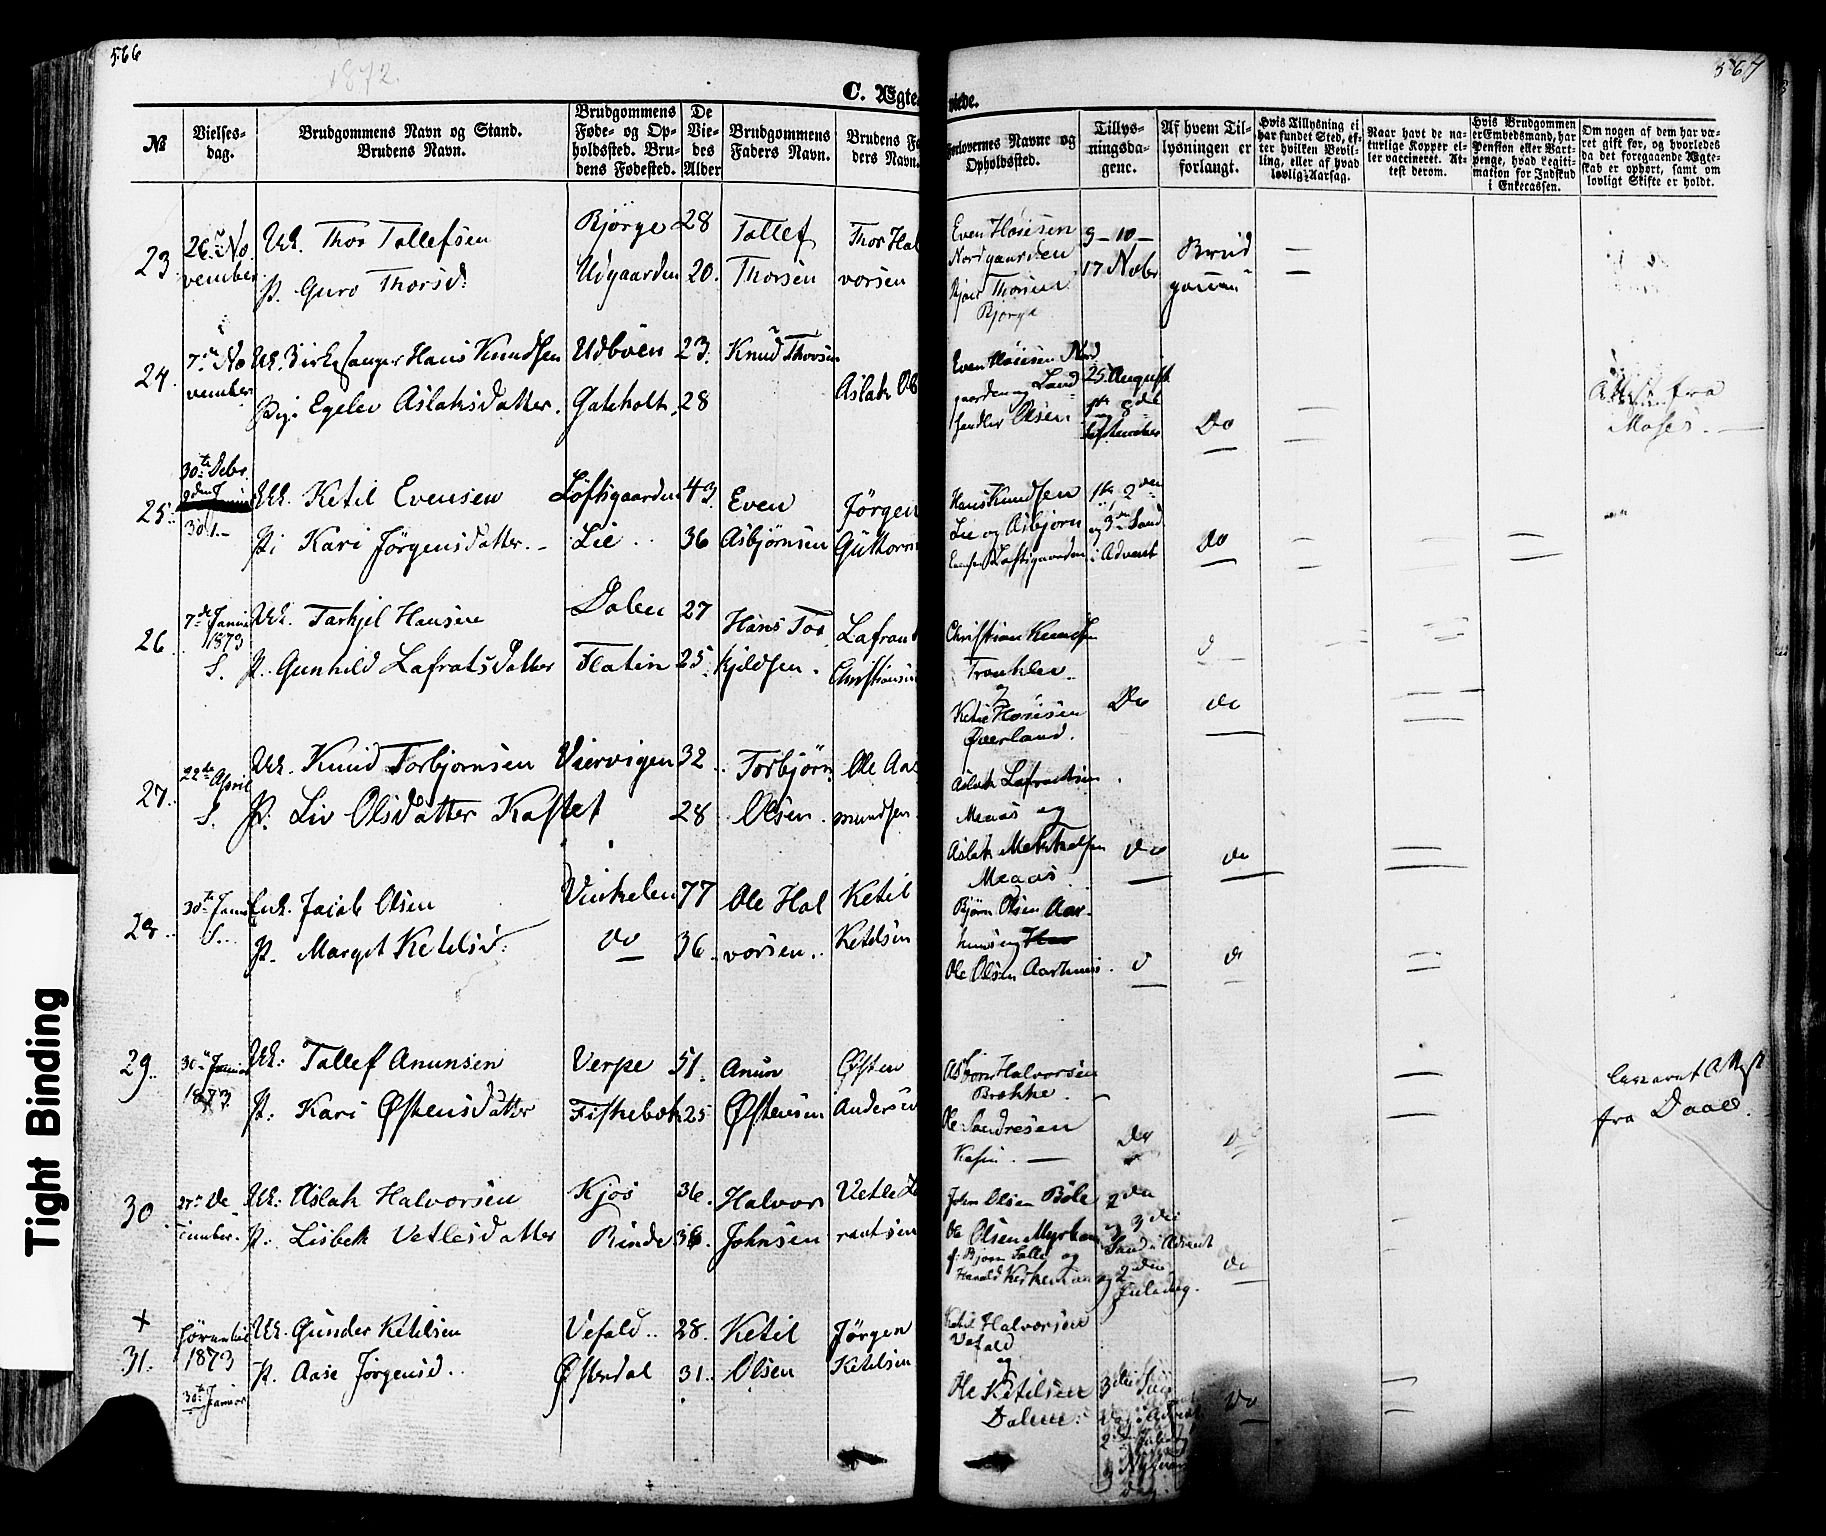 566
1872.
567
C. Ægte
viede.
№
Vielses-
dag.
Brudgommens Navn og Stand.
Brudens Navn.
Brudgommens
Føde- og Op-
holdssted. Bru-
dens Fødested.
De
Vie-
des
Alder
Brudgommens
Faders Navn.
Brudens Fa
ders Navn.
Forlovernes Navne og
Opholdssted.
Tillys-
ningsda-
gene.
Af hvem Til-
lysningen er
forlangt.
Hvis Tillysning ei
har fundet Sted, ef-
ter hvilken Bevil-
ling, eller af hvad
lovlig Aarsag.
Naar havt de na-
turlige Kopper el-
ler vaccineret. At-
test derom.
Hvis Brudgommen
er Embedsmand, har
Pension eller Vart-
penge, hvad Legiti-
mation for Indskud
i Enkecassen.
Om nogen af dem har væ-
ret gift før, og hvorledes
da det foregaaende Ægte-
skab er ophørt, samt om
lovligt Skifte er holdt.
23
26 No
vember
Uk. Thor Tollefsen
P. Guro Thorsd.
Bjørge 28
Udgaarden 20.
Tollef
Thorsen
Thor Hal
vorsen
Even Hansen
Nordgaarden
Thorsen
Bjørge
9 - 10 -
17 Novbr
Brud
gommen
24.
7de No
vember
Uk. Kirkesanger Hans Knudsen
Pig. Egelev Aslaksdatter.
Udbøen 23.
Gateholt 28
Knud Thorsen
Aslak Ol
Even Hansen Nord
gaarden og Land
handler Olsen
25 August
1ste og 8de
September
Do
Attest fra
Moses.
25.
30te Debr.
30/1.-
Uk. Ketil Evensen
P. Kari Jørgensdatter.-
Loftsgaarden 43
Lie 36
Even
Asbjørnsen
Jørgen
Guttorm
Hans Knudsen
Lie og Asbjørn
Loftsgaarden
1ste, 2den
og 3die Sønd
i Advent
Do
26.
7de Januar
1873
S.
Uk. Tarkjel Hansen
P. Gunhild Lafratsdatter
Dalen 27
Flatin 25
Hans Tor
kjeldsen.
Lafrant
Christiansen
Christian Knudsen
Tronhler
og
Ketil Hansen
Øverland.
Do
do
27.
22de April
S.
Uk. Knud Torbjørnsen
P. Liv Olsdatter Kastet
Viervigen 32
28
Torbjørn
Olsen.
Ole Aas
mundsen
Aslak Lafrantsen
Meaas og
Aslak
Meaas.
Do
do
28.
30te Janu
S.
Enk. Jacob Olsen
P. Margit Ketilsd.
Vinkelen 77
do 36.
Ole Hal
vorsen.
Ketil
Ketilsen
Bjørn Olsen Aar-
hus og
Ole Olsen Aarhuus.
do
29.
30te Januar
1873
Uk. Tollef Anunsen
P. Kari Østensdatter
Verpe 51.
Fiskebek 25
Anun
Østensen
Østen
Andersen
Asbjørn Halvorsen
Brække.
Ole Sondresen
Do
do
Attest
fra Daaes.
30.
27de De
cember.
Uk. Aslak Halvorsen
P. Lisbeth Vetlesdatter
Kjos 36.
Rinde 38.
Halvor
Johnsen
Vetle La
rantsen
John Olsen Bøle
Ole Olsen Myrhen
f. Bjørn Lalle og
Harald
2den
og 3die
Sønd i Advent
og 2den
Juledag.
do
+
31.
1873
30te Januar
Uk. Gunder Ketilsen
P. Aase Jørgensd.
Vefald 28.
Østerdal 31.
Ketil
Olsen
Jørgen
Ketilsen
Ketil Halvorsen
Vefald
og
Ole Ketilsen
Dalen.
3die Søn
dag i Advent
2den Juledag
og Nytaars
dag.
Do
Tight Binding